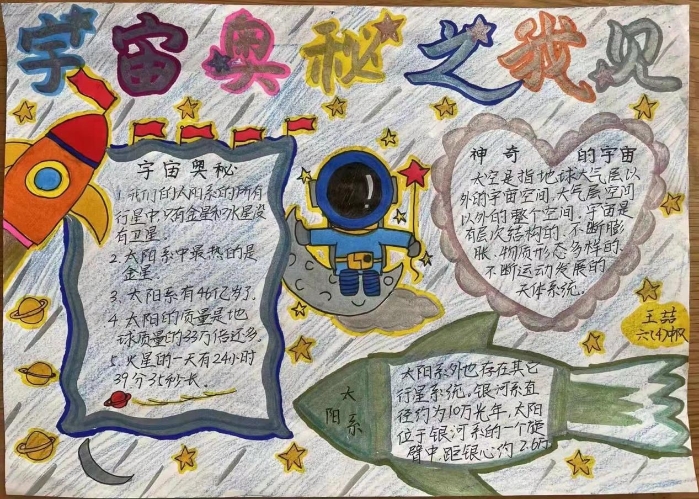 宇宙奥秘之我见
宇宙奥秘
1.我们的太阳系的所有
行星中只有金星和水星没
有卫星。
2.太阳系中最热的是
金星
3.太阳系有46亿岁了.
4.太阳的质量是地
球质量的33万倍还多。
5.火星的一天有24小时
39分35秒长。
神奇 的宇宙
太空是指地球大气层以
外的宇宙空间,大气层空间
以外的整个空间,宇宙是
有层次结构的、不断膨
胀、物质形态多样的、
不断运动发展的
天体系统。
王喆
六(4)中队
太阳系
太阳系外也存在其它
行星系统。银河系直
径约为10万光年,太阳
位于银河系的一个旋
臂中,距银心约2.6万